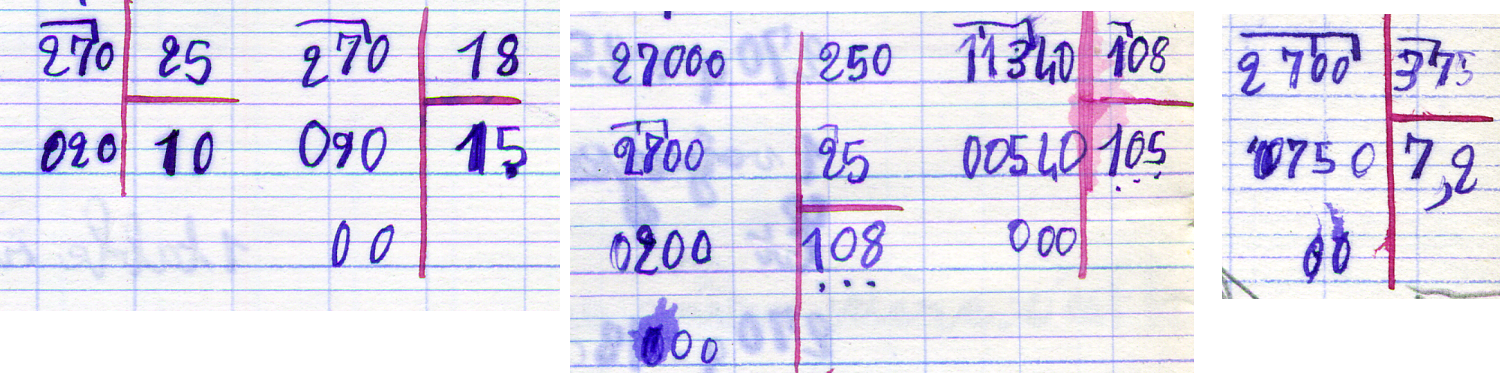 270 25
020 10
270 18
090 15
00
27000 250
2700 25
0200 108
000
11340 108
00540 105
000
2700 375
0750 7,2
00